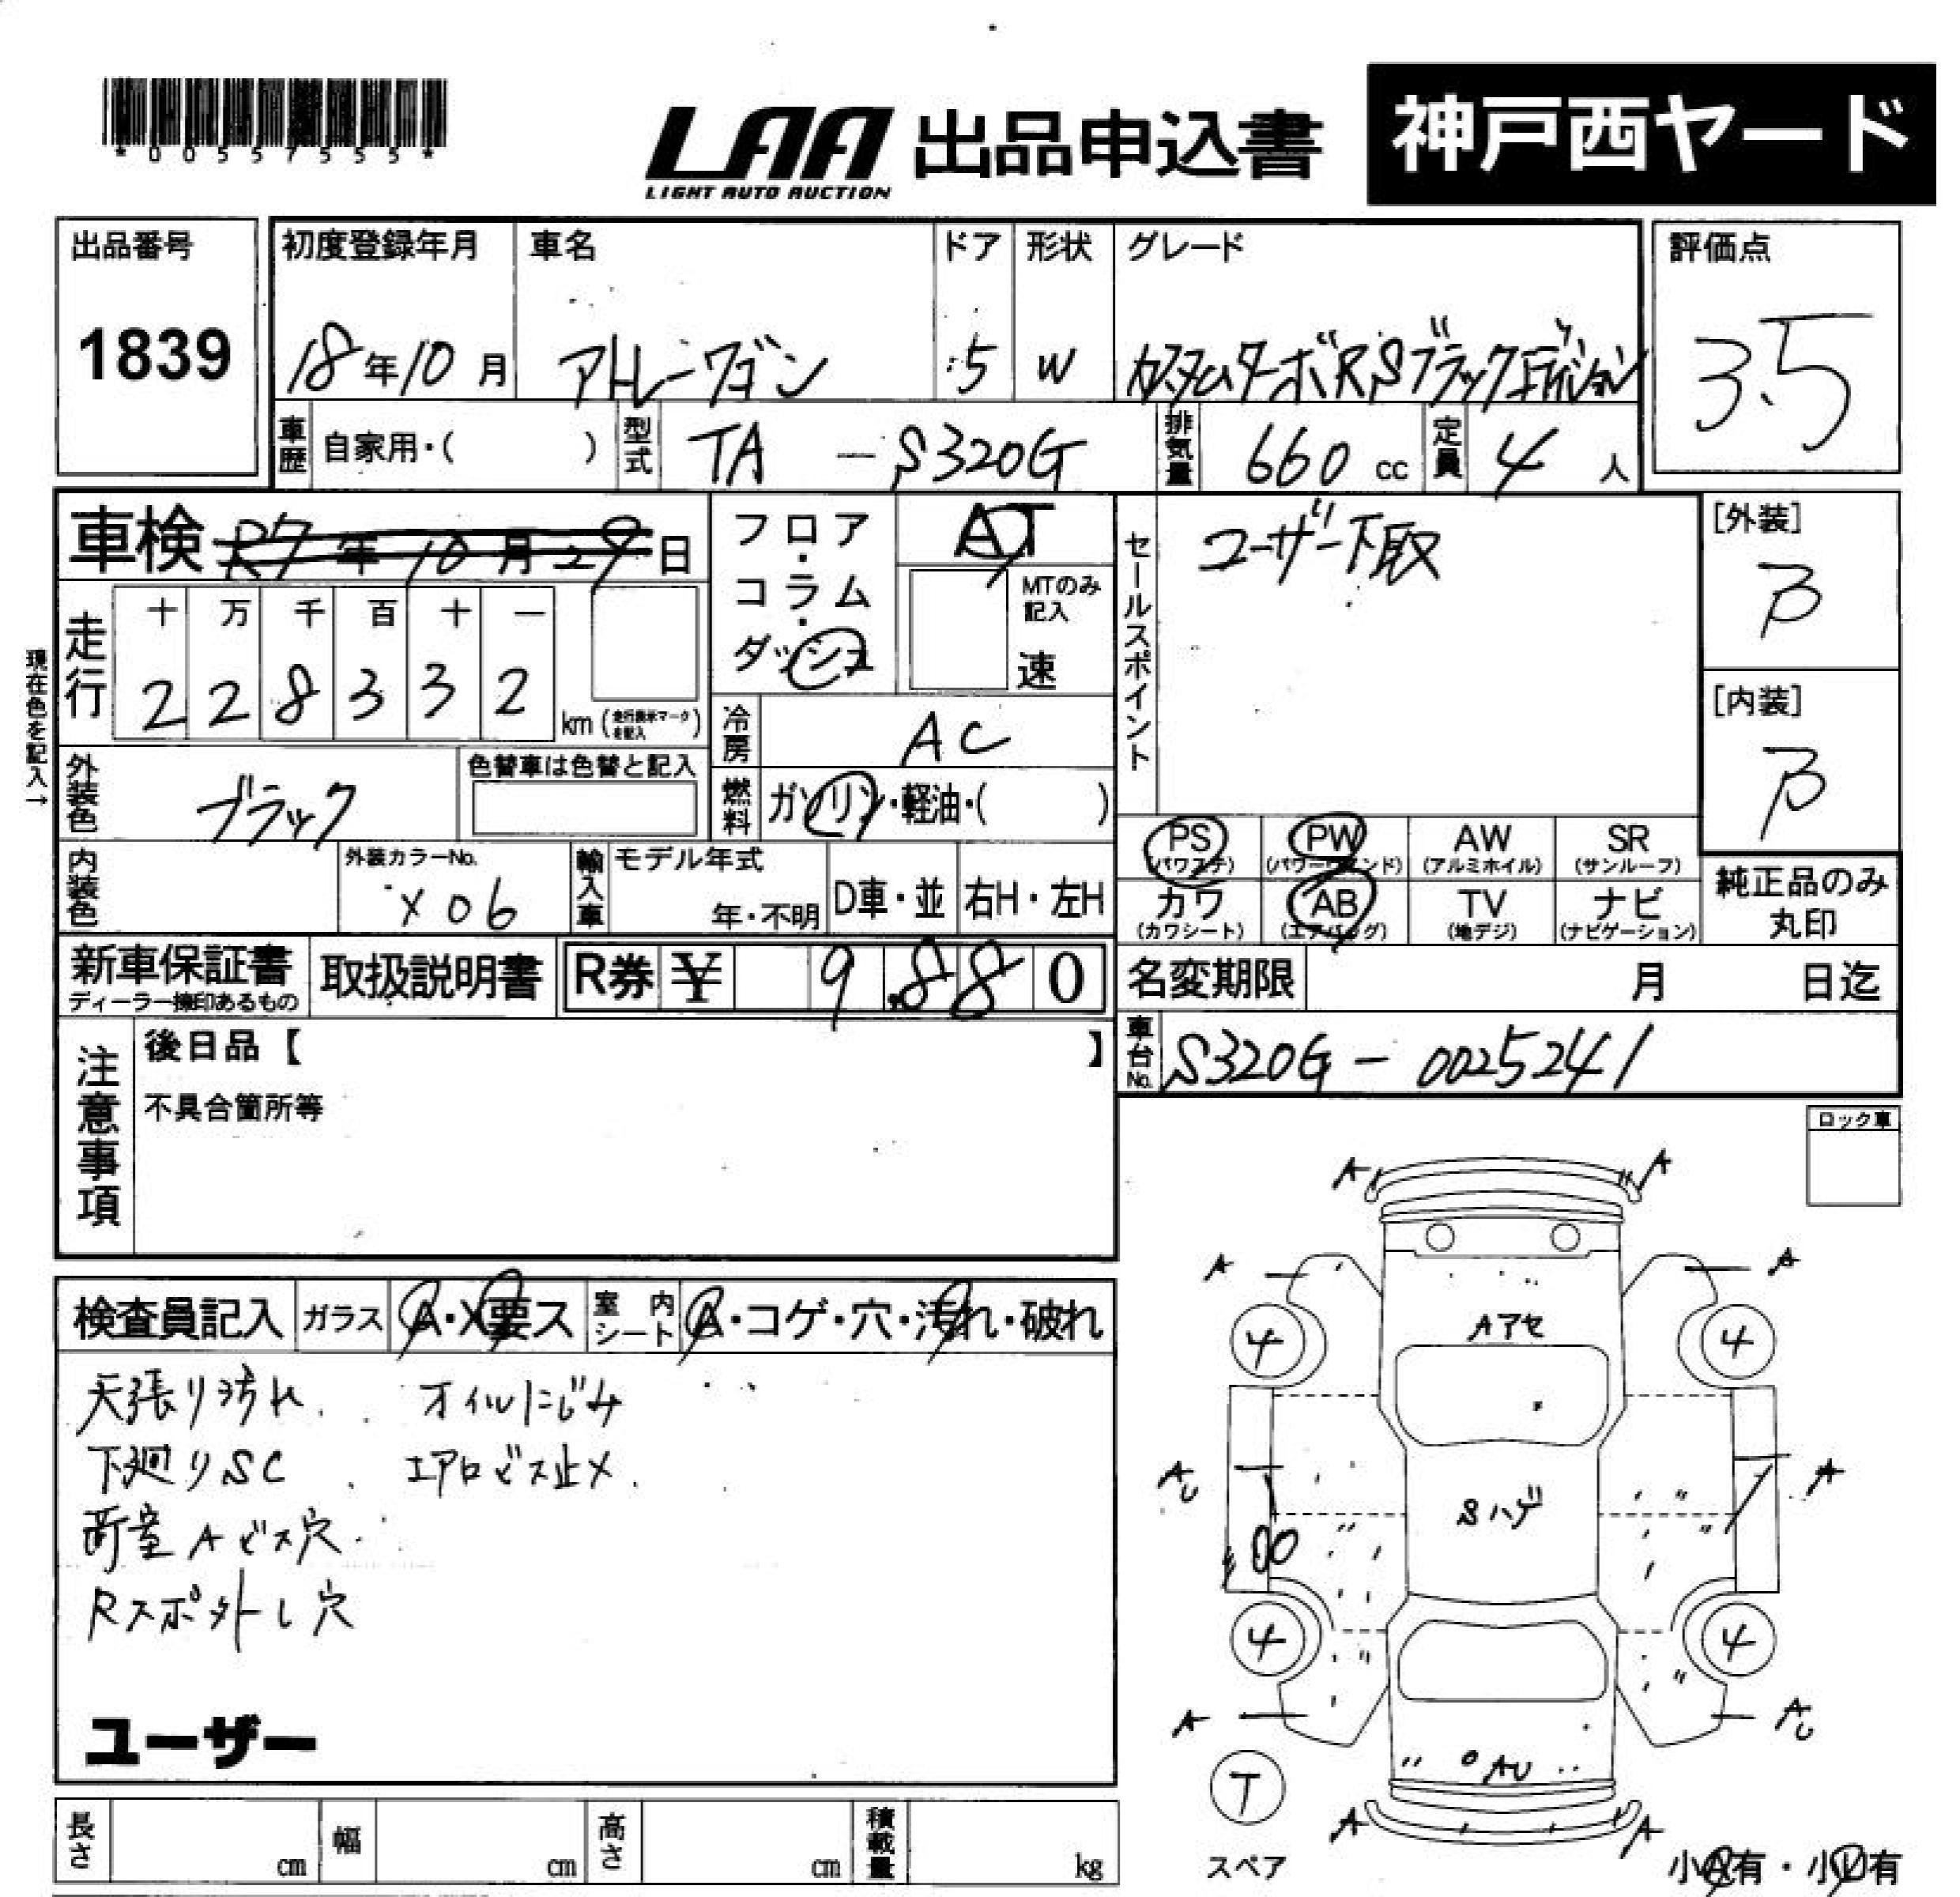 *00557555*
LAA 出品申込書 神戸西ヤード
LIGHT AUTO AUCTION
出品番号 初度登録年月 車名 ドア 形状 グレード 評価点
1839 18年10月 アトレーワゴン 5 W カスタムターボRSブラックエディション 3.5
車歴 自家用・( ) 型式 TA -S320G 排気量 660 cc 定員 4 人
車検 R7年10月29日 フロア・コラム・ダッシュ AT セールスポイント ユーザー下取 [外装]
B
MTのみ記入
速
走行 十 万 千 百 十 一
2 2 8 3 3 2 km (走行換米マークを記入)
現在色を記入→
冷房 AC
[内装]
B
外装色 ブラック 色替車は色替と記入 燃料 ガソリン・軽油・( )
PS (パワステ) PW (パワーウインド) AW (アルミホイル) SR (サンルーフ)
内装色 外装カラーNo. X06 輸入車 モデル年式 年・不明 D車・並 右H・左H
カワ (カワシート) AB (エアバッグ) TV (地デジ) ナビ (ナビゲーション)
純正品のみ
丸印
新車保証書 ディーラー捺印あるもの 取扱説明書 R券 ¥ 9.880 名変期限 月 日迄
注意事項 後日品【 】
車台No. S320G-0025241
不具合箇所等
ロック車
検査員記入 ガラス A・X要ス 室内シート A・コゲ・穴・汚れ・破れ
天張り汚れ. オイルにじみ
下廻りSC . エアロビス止メ.
荷室Aビス穴.
Rスポ外し穴
ユーザー
A A
A A
4 Aアセ 4
AU A
Sハゲ
4 4
A AU
AU
T
スペア
A A
小A有・小U有
長さ cm 幅 cm 高さ cm 積載量 kg